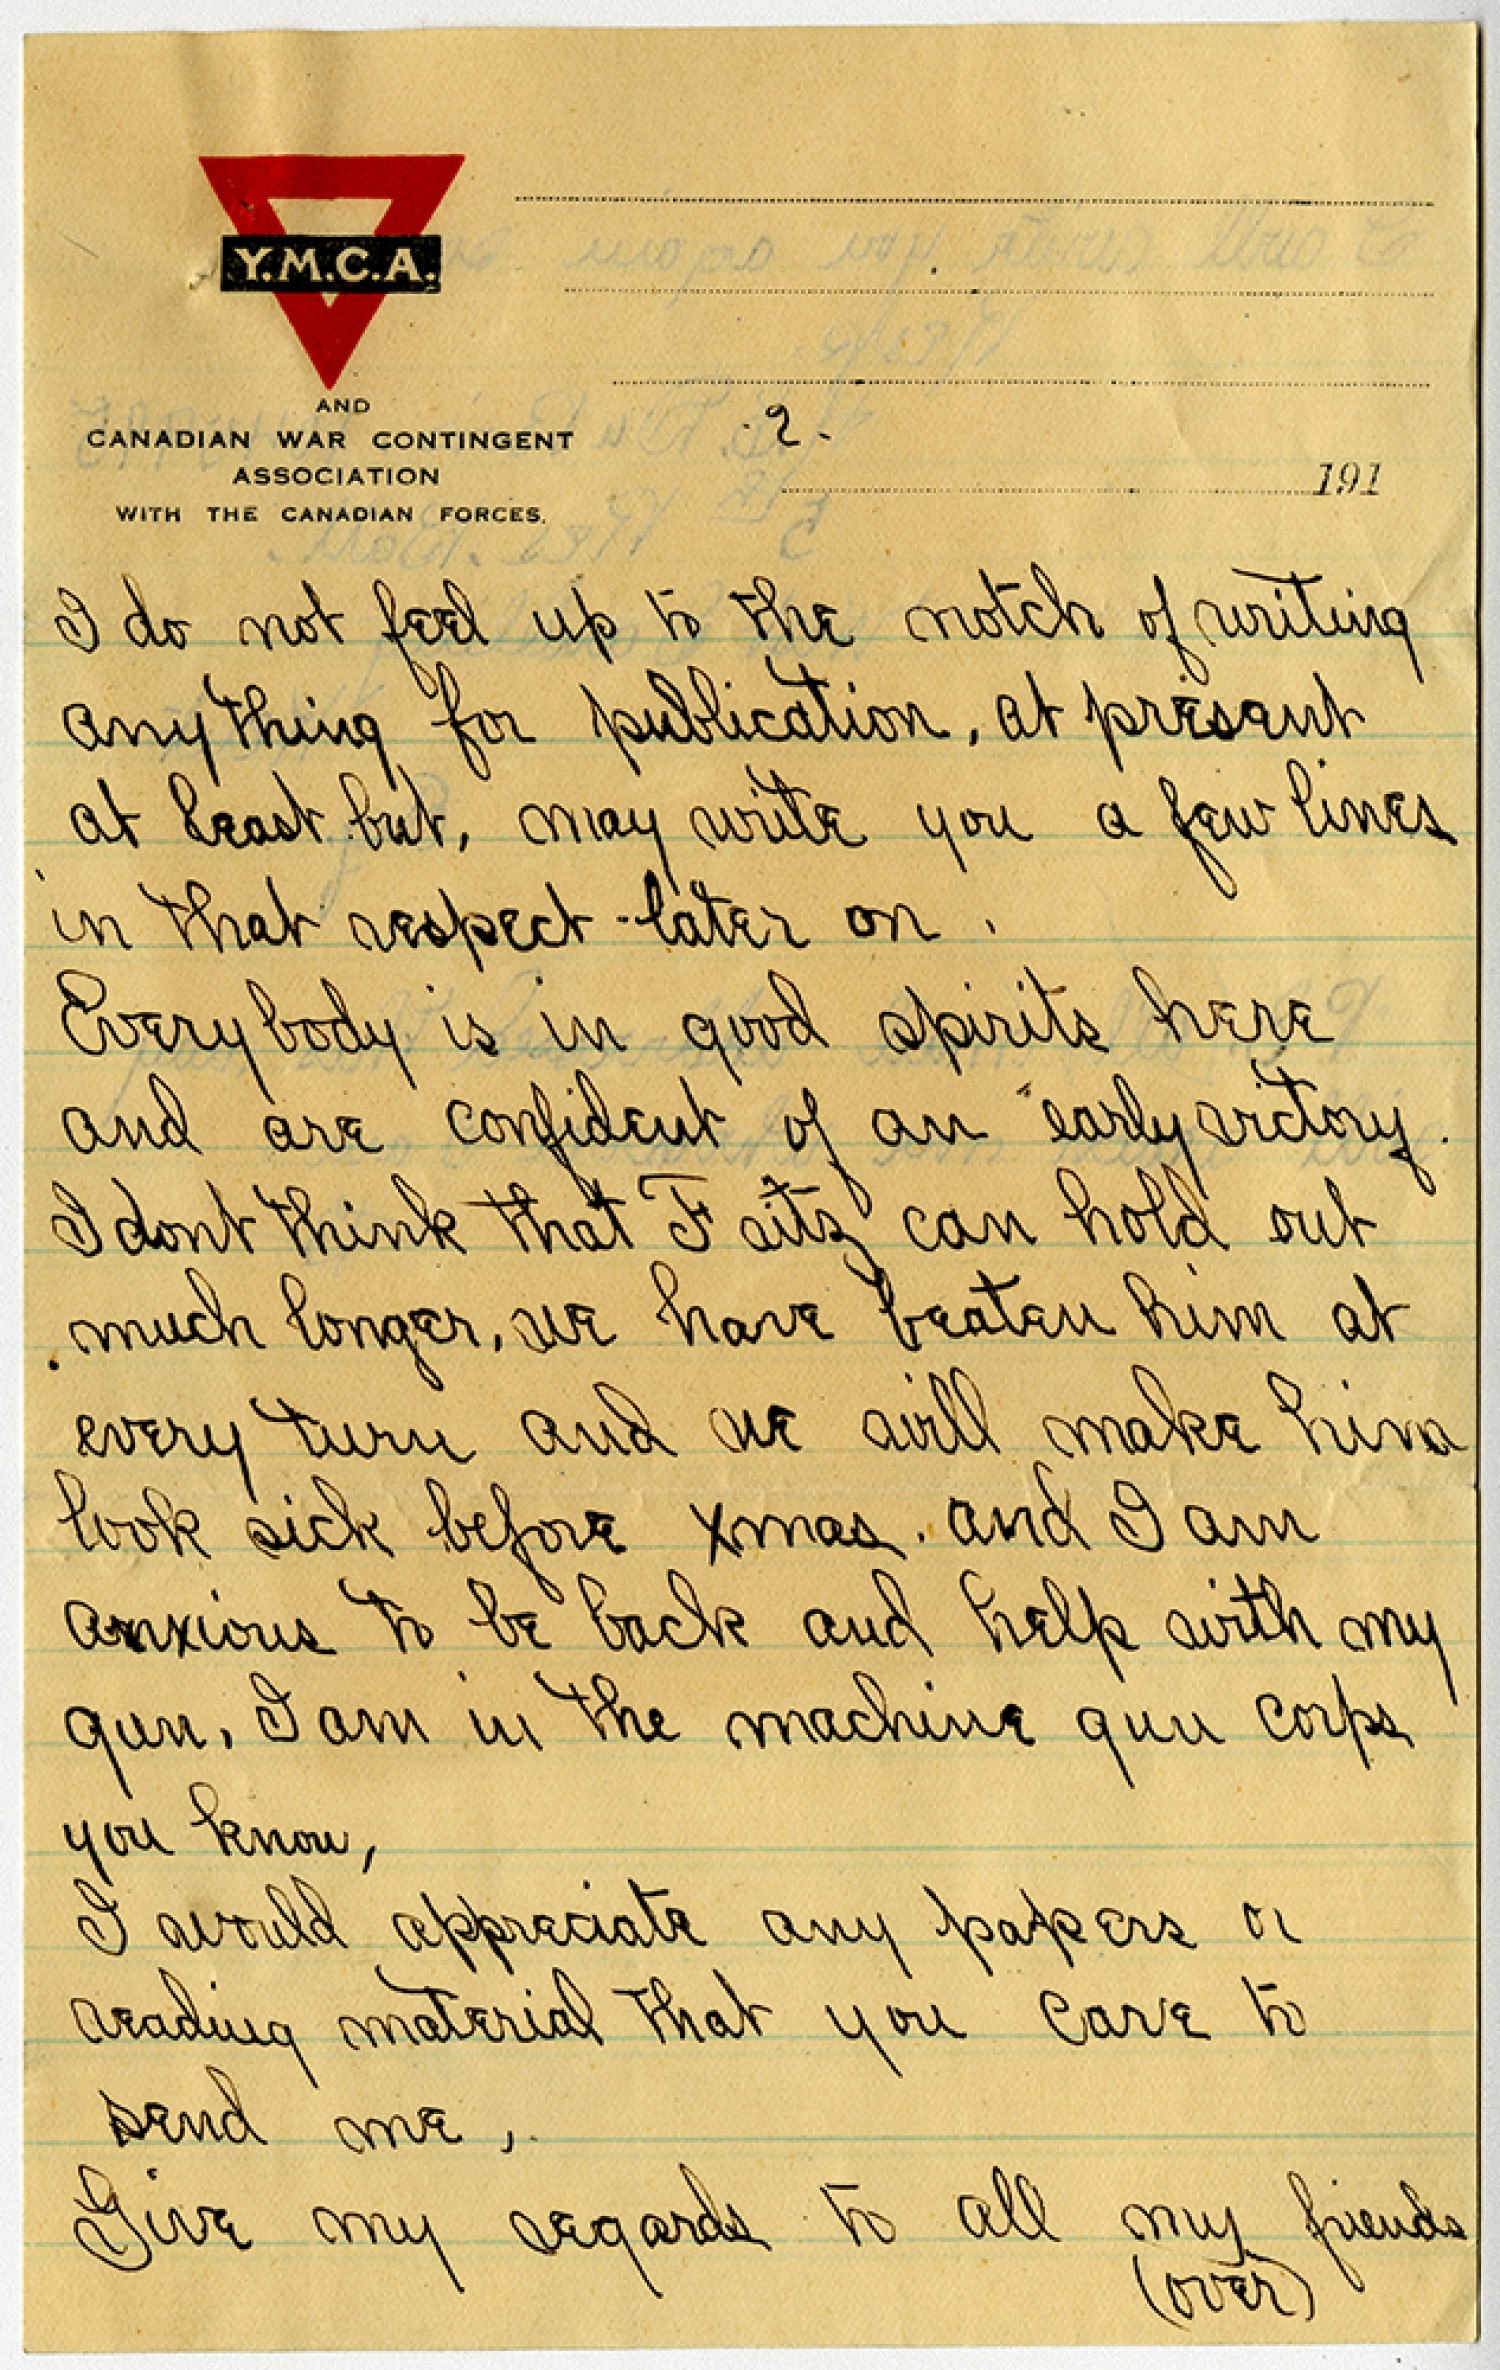 Y.M.C.A.
AND
CANADIAN WAR CONTINGENT
ASSOCIATION
WITH THE CANADIAN FORCES.
.2.
191
I do not feel up to the notch of writing
anything for publication, at present
at least but, may write you a few lines
in that respect later on.
Everybody is in good spirits here
and are confident of an early victory.
I dont think that Fritz can hold out
much longer, we have beaten him at
every turn and we will make him
look sick before xmas. and I am
anxious to be back and help with my
gun. I am in the machine gun corps
you know,
I would appreciate any papers or
reading material that you care to
send me,
Give my regards to all my friends
(over)